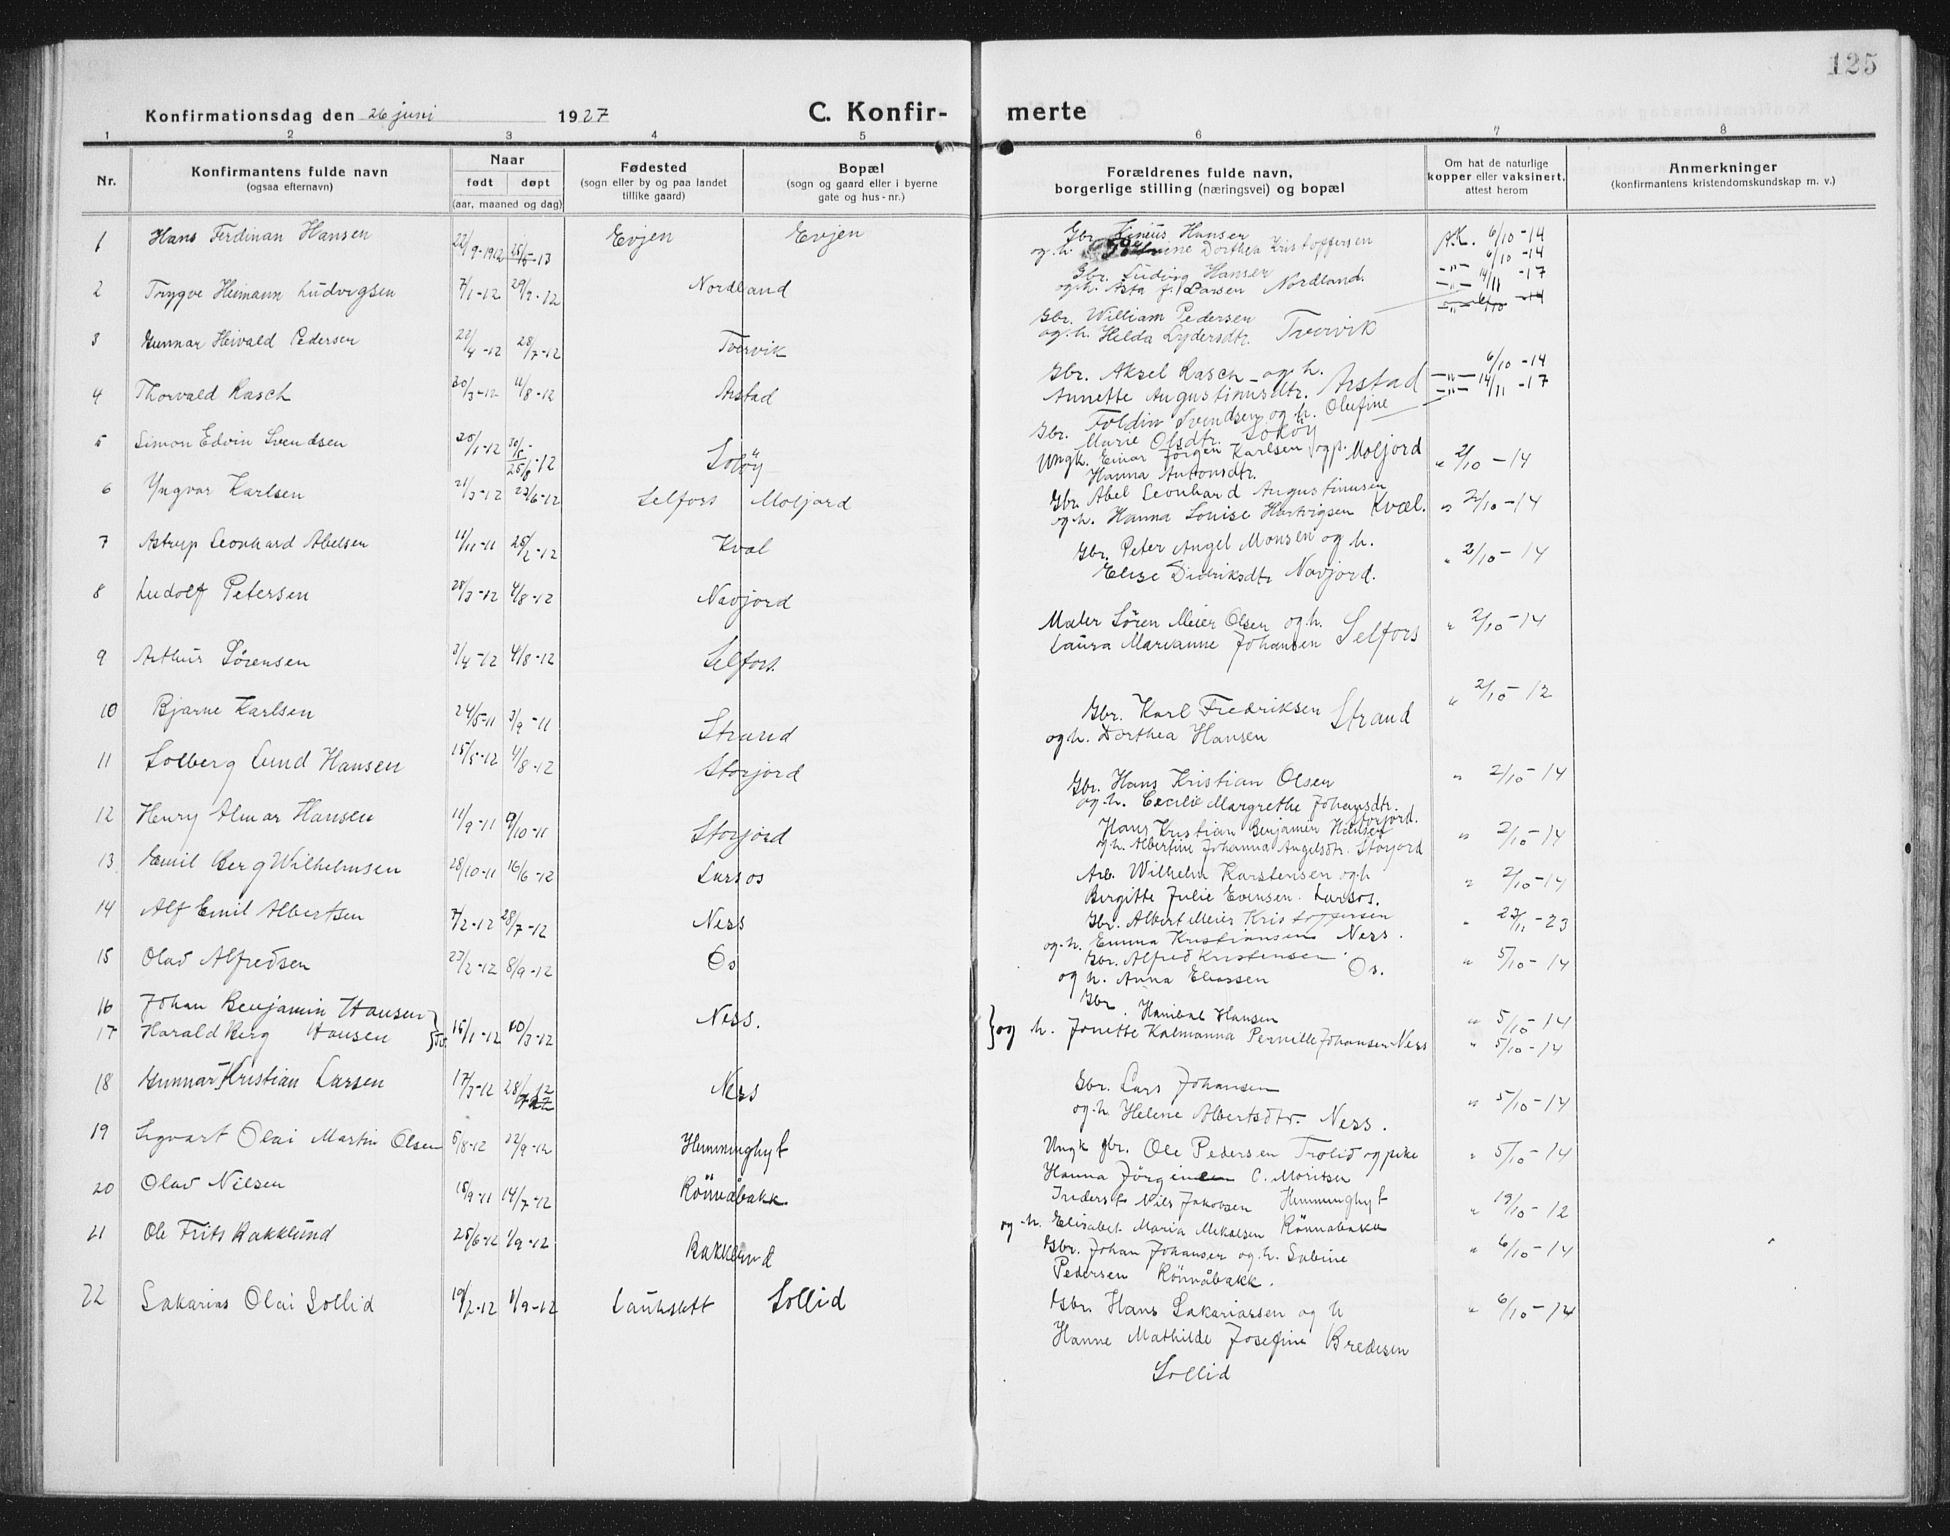 125
Konfirmationsdag den 26 juni 1927
C. Konfir-
merte
1 2 3 4 5 6 7 8
Nr.
Konfirmantens fulde navn
(ogsaa efternavn)
Naar
født døpt
(aar, maaned og dag)
Fødested
(sogn eller by og paa landet
tillike gaard)
Bopæl
(sogn og gaard eller i byerne
gate og hus-nr.)
Forældrenes fulde navn,
borgerlige stilling (næringsvei) og bopæl
Om hat de naturlige
kopper eller vaksinert,
attest herom
Anmerkninger
(konfirmantens kristendomskundskap m. v.)
1 Hans Ferdinan Hansen 22/9-1912 25/5-13 Evjen Evjen
Gbr. Hansen
og h. Dorthea Kristoffersen
A.K. 6/10-14
2 Trygve Heimann Ludvigsen 7/1-12 29/7-12 Nordland
Gbr. Ludvig Hansen
og h. Asta f. Larsen Nordland.
-"- 6/10-14
-"- 14/11-17
3 Gunnar Heivald Pedersen 22/4-12 28/7-12 Tvervik
Gbr. William Pedersen
og h. Helda Lydersdtr. Tvervik
4 Thorvald Rasch 30/3-12 11/8-12 Arstad
Gbr. Aksel Rasch og h.
Annette Augustinusdtr. Arstad
6/10-14
5 Simon Edvin Svendsen 20/1-12 30/5- 25/8-12 Soløy
Gbr. Foldin Svendsen og h. Olufine
Marie Olsdtr. Soløy
-"- 14/11-17
6 Yngvar Karlsen 21/3-12 23/6-12 Selfors Moljord
Ungk. Einar Jörgen Karlsen og p. Moljord
Hanna Antonsdtr.
" 2/10-14
7 Astrup Leonhard Abelsen 11/11-11 25/2-12 Kval
Gbr. Abel Leonhard Augustinusen
og h. Hanna Louise Hartvigsen Kvæl.
" 2/10-14
8 Ludolf Petersen 28/3-12 4/8-12 Navjord
Gbr. Peter Angel Monsen og h.
Elise Didriksdtr Navjord.
" 2/10-14
9 Arthur Sørensen 3/4-12 4/8-12 Selfors.
Maler Søren Meier Olsen og h.
Laura Marianne Johansen Selfors
" 2/10-14
10 Bjarne Karlsen 24/5-11 3/9-11 Strand
Gbr. Karl Fredriksen Strand
og h. Dorthea Hansen
" 2/10-12
11 Solberg Lund Hansen 15/5-12 4/8-12 Storjord
Gbr. Hans Kristian Olsen
og h. Cecilie Margrethe Johansdtr.
Storjord.
" 2/10-14
12 Henry Almar Hansen 11/9-11 9/10-11 Storjord
Hans Kristian Benjamin Hansen
og h. Albertine Johanna Angelsdtr. Storjord
" 2/10-14
13 Emil Berg Wilhelmsen 28/10-11 16/6-12 Larsos
Arb. Wilhelm Karstensen og h
Birgitte Julie Evensen. Larsos.
" 2/10-14
14 Alf Emil Albertsen 7/2-12 28/7-12 Ness
Gbr. Albert Meier Kristoffersen
og h. Emma Kristiansen Ness.
" 27/11-23
15 Olav Alfredsen 23/2-12 8/9-12 Os
Gbr. Alfred Kristensen.
og h. Anna Eliassen Os.
" 5/10-14
16 Johan Benjamin Hansen
17 Harald Berg Hansen } Tv. 15/1-12 10/3-12 Ness.
Gbr. Hanibal Hansen
} og h. Jonette Kalmanna Pernille Johansen Ness
" 5/10-14
" 5/10-14
18 Gunnar Kristian Larsen 17/3-12 28/7-12 Ness
Gbr. Lars Johansen
og h. Helene Albertsdtr. Ness.
" 5/10-14
19 Sigvart Olai Martin Olsen 5/8-12 22/9-12 Hemminghyt
Ungk gbr. Ole Pedersen Trolid og pike
Hanna Jörginen C. Moritsen
" 5/10-14
20 Olav Nilsen 18/9-11 14/7-12 Rönnåbakk
Inderst Nils Jakobsen Hemminghyt
og h. Elisabet Maria Mikalsen Rönnabakk
" 19/10-12
21 Ole Frits Bakklund 25/6-12 1/9-12 Bakklund
Gbr. Johan Johansen og h. Sabine
Pedersen Rönnåbakk.
" 6/10-14
22 Sakarias Olai Sollid 19/2-12 1/9-12 Laukslett Sollid
Gbr. Hans Sakariassen og h
Hanne Mathilde Josefine Bredesen
Sollid
" 6/10-14